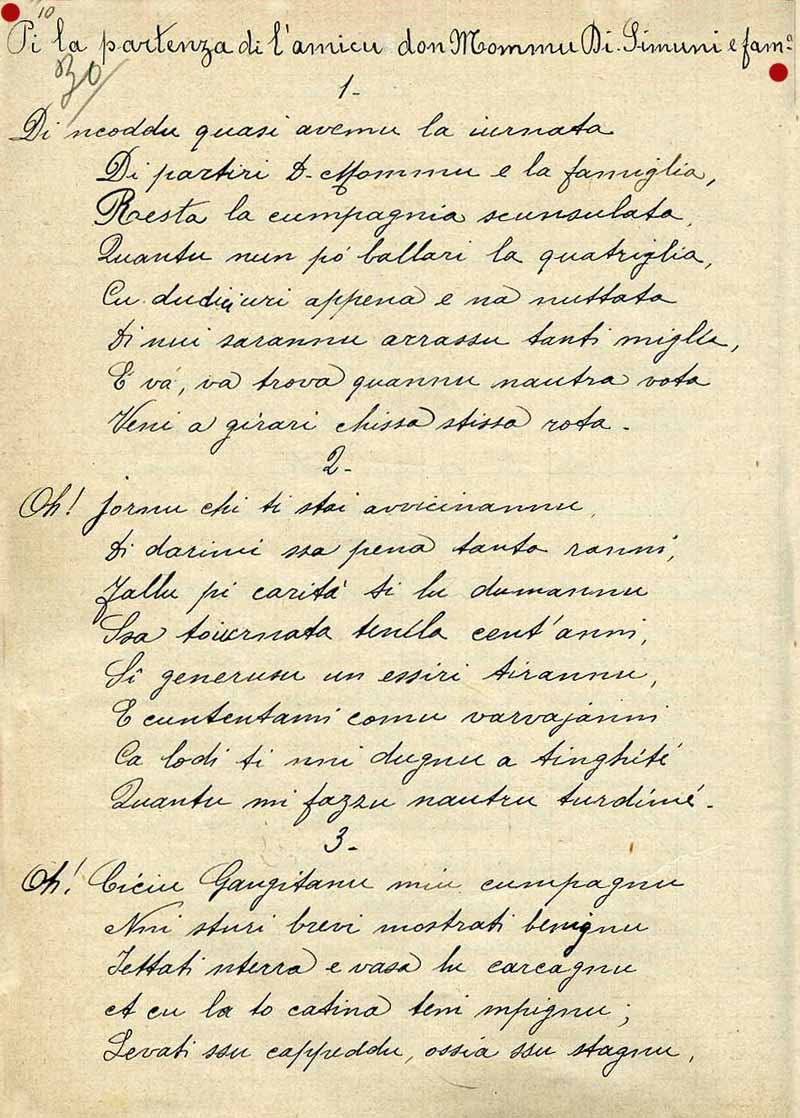 10
Pi la partenza di l'amicu don Mommu Di Simuni e fam.a
30/
1-
Di ncoddu quasi avemu la iurnata
Di partiri D- Mommu e la famiglia,
Resta la cumpagnia scunsulata,
Quantu nun pò ballari la quatriglia,
Cu dudiciuri appena e na nuttata
Di nui sarannu arrassu tanti miglia,
E va, va trova quannu nautra vota
Veni a girari chissa stissa rota.
2-
Oh! jornu chi ti stai avvicinannu,
Di darimi ssa pena tanta ranni,
Fallu pi carità ti lu dumannu
Ssa toiurnata tenilla cent'anni,
Sî generusu un essiri tirannu,
E cuntentami comu varvajanni
Ca lodi ti nni dugnu a tinghitè
Quantu mi fazzu nautru turdimé.
3-
Oh! Ciciu Gangitanu miu cumpagnu
Nni sturi brevi mostrati benignu
Jettati nterra e vasa lu carcagnu
A cu la to catina teni mpignu;
Levati ssu cappeddu, ossia ssu stagnu,